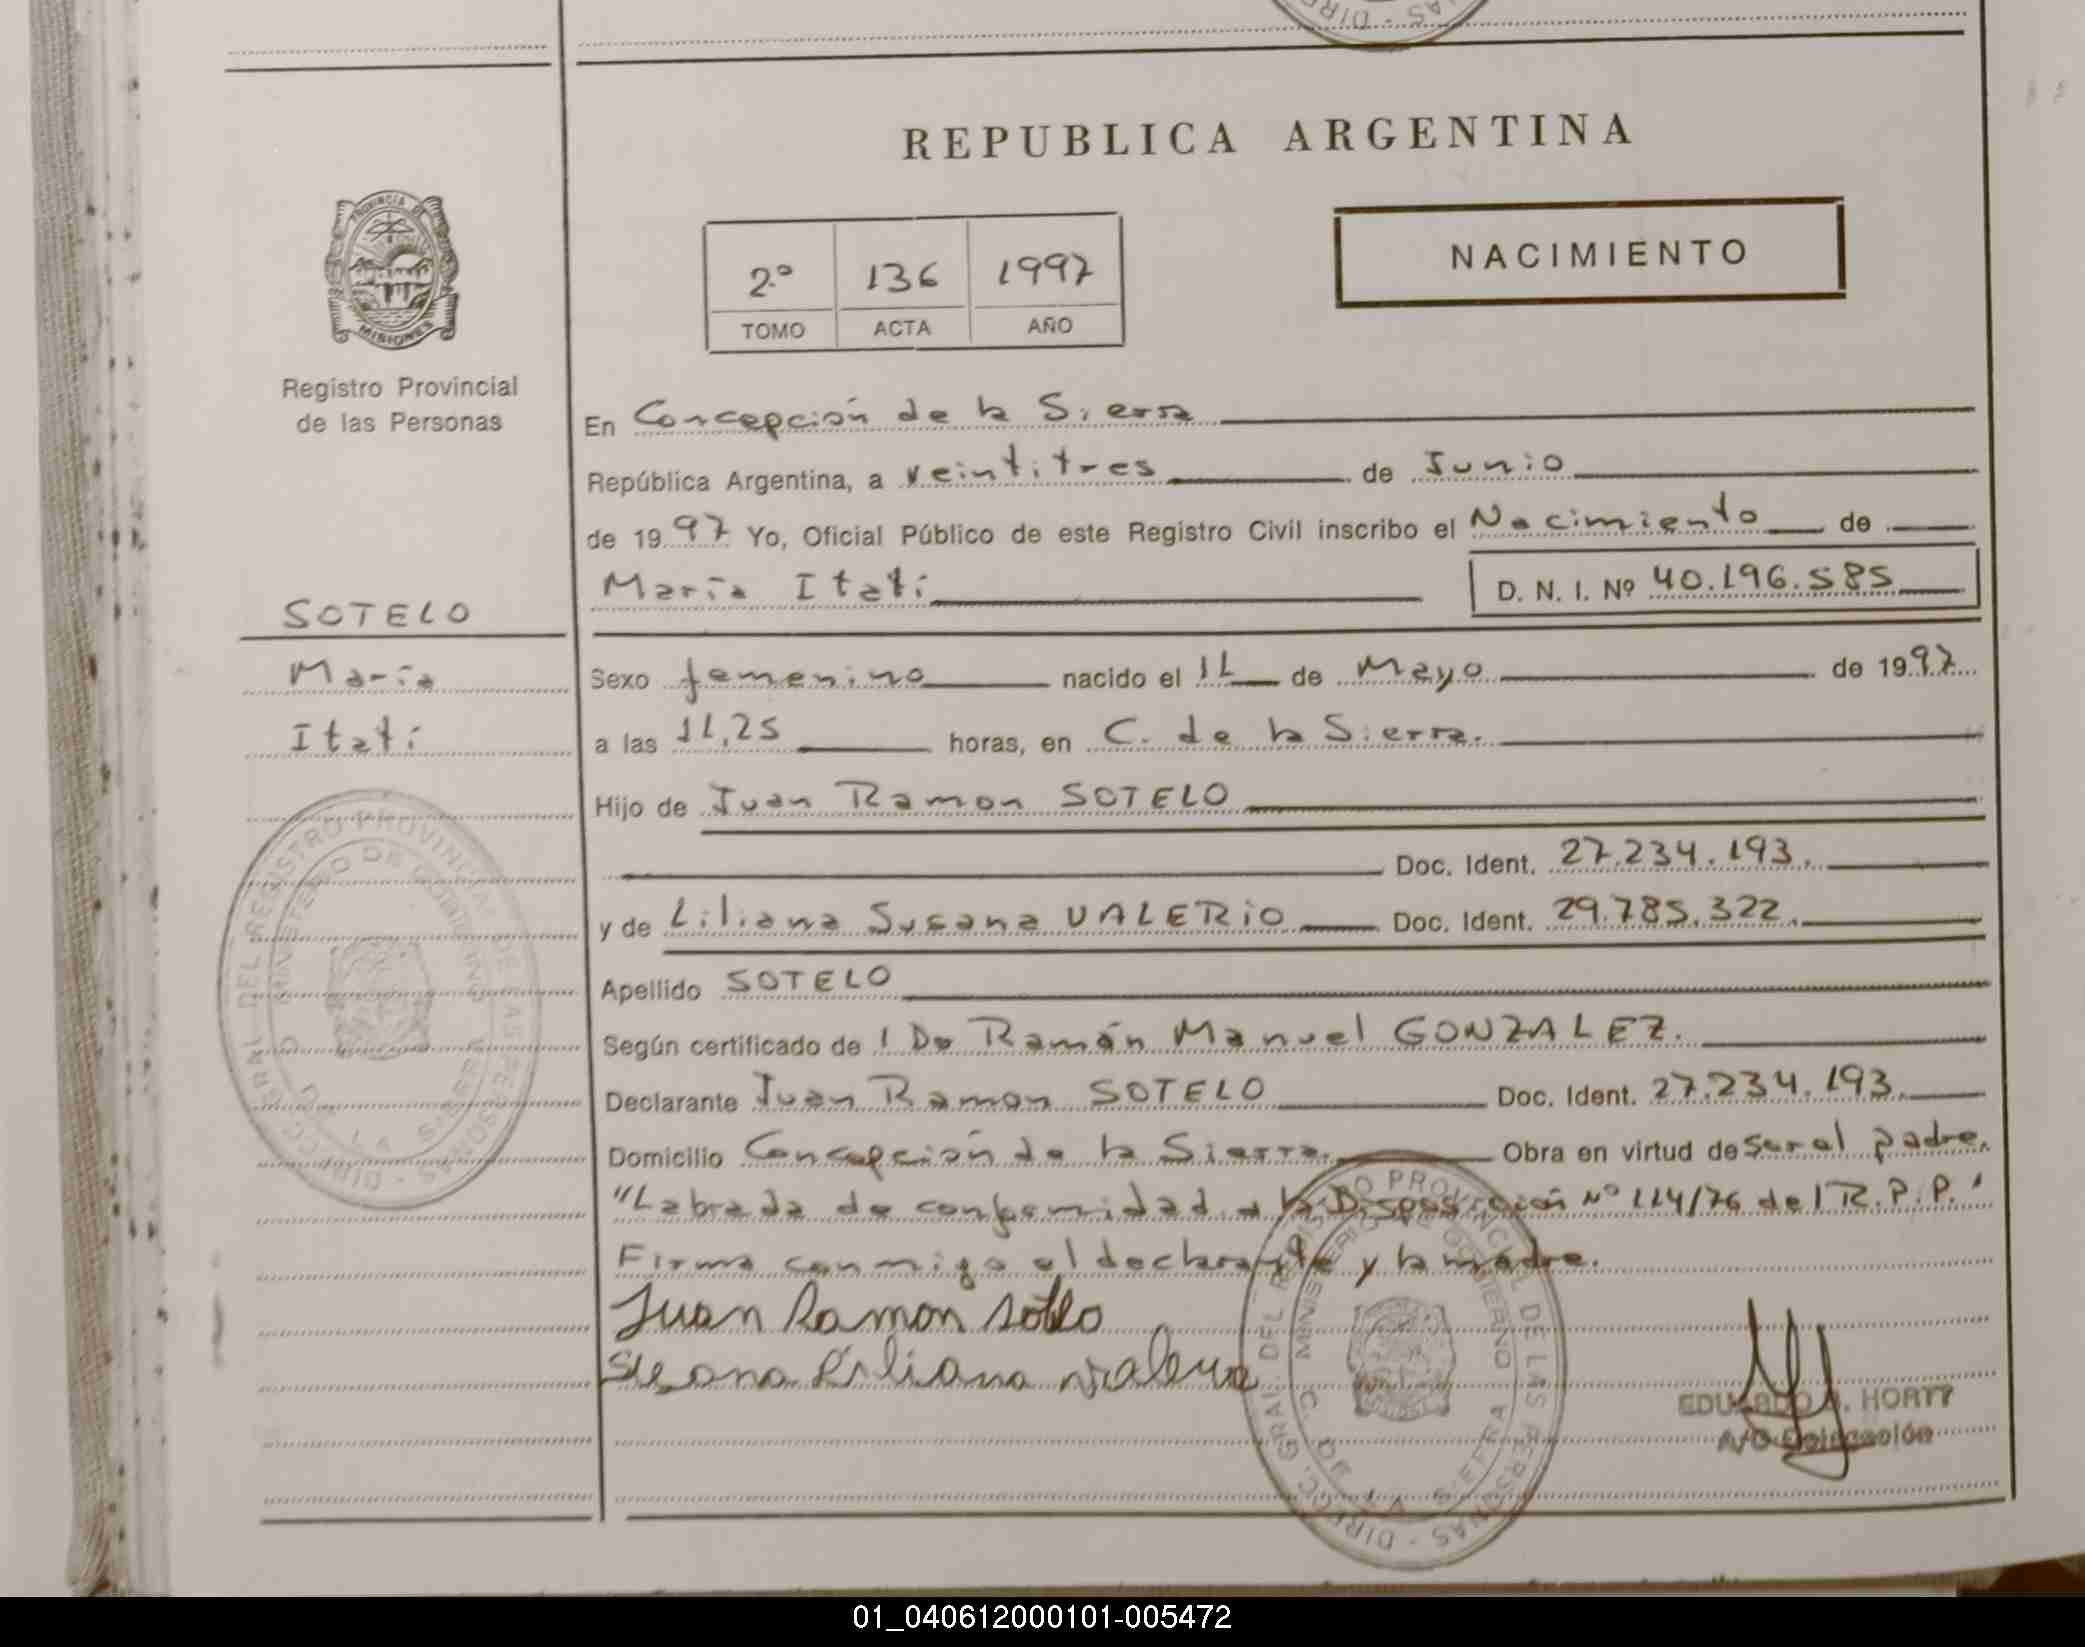 REPUBLICA ARGENTINA
PROVINCIA DE
MISIONES
Registro Provincial
de las Personas
2º 136 1997
TOMO ACTA AÑO
NACIMIENTO
En Concepción de la Sierra
República Argentina, a veintitres de Junio
de 1997 Yo, Oficial Público de este Registro Civil inscribo el Nacimiento de
María Itatí D. N. I. Nº 40.196.585
SOTELO
María
Itatí
Sexo femenino nacido el 11 de Mayo de 1997
a las 11,25 horas, en C. de la Sierra.
Hijo de Juan Ramon SOTELO
Doc. Ident. 27.234.193.
y de Liliana Susana VALERIO Doc. Ident. 29.785.322.
Apellido SOTELO
Según certificado de l Dr Ramón Manuel GONZALEZ.
Declarante Juan Ramon SOTELO Doc. Ident. 27.234.193.
Domicilio Concepción de la Sierra. Obra en virtud de ser el padre.
"Labrada de conformidad a la Disposición Nº 114/76 del R.P.P."
Firma conmigo el declarante y la madre.
Juan Ramon Sotelo
Susana Liliana Valerio
EDUARDO HORTT
A/C Delegación
DIRECC. GRAL. DEL REGISTRO PROVINCIAL DE LAS PERSONAS
MINISTERIO DE GOBIERNO
C. DE LA SIERRA
01_040612000101-005472